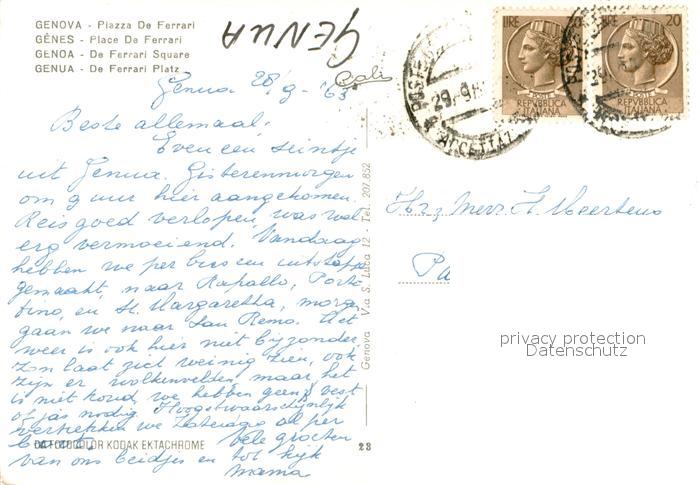 GENOVA - Piazza De Ferrari
GÊNES - Place De Ferrari
GENOA - De Ferrari Square
GENUA - De Ferrari Platz
GENUA
Genua 28/9-'63
Beste allemaal,
Even een seintje
uit Genua. Gisterenmorgen
om 9 uur hier aangekomen.
Reis goed verlopen, was wel
erg vermoeiend. Vandaag
hebben we per bus een uitstapje
gemaakt, naar Rapallo, Porto-
fino, en St. Margaretha, morgen
gaan we naar San Remo. Het
weer is ook hier niet bijzonder,
zon laat zich weinig zien, ook
zijn er wolkenvelden, maar het
is niet koud, we hebben geen vest
of jas nodig. Hoogstwaarschijnlijk
vertrekken we Zaterdag al per
Vele groeten
van ons beidjes en tot kijk
Mama
FOTOCOLOR KODAK EKTACHROME
23
Genova Via S. Luca 12 - Tel. 207.852
LIRE 20
POSTE
REPVBBLICA
ITALIANA
LIRE 20
POSTE
REPVBBLICA
ITALIANA
29-9
Mevr. H. Meertens
Pa
privacy protection
Datenschutz